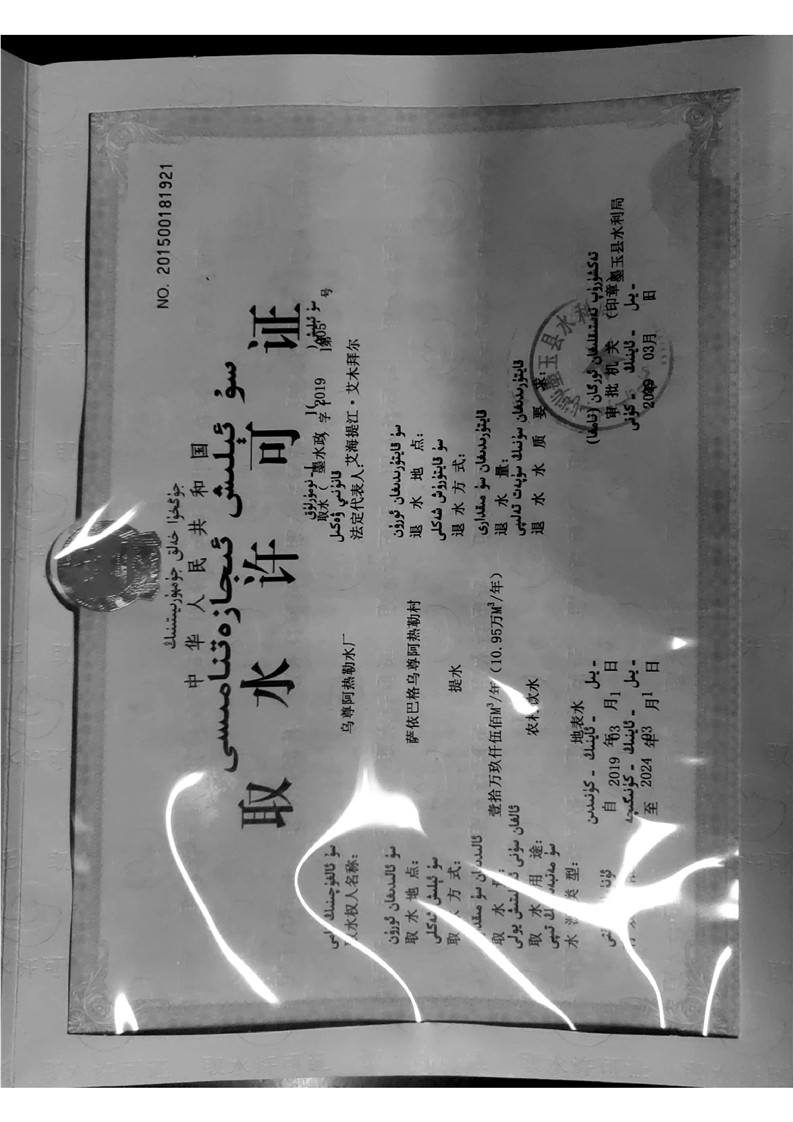 NO. 201500181921
جۇڭخۇا خەلق جۇمھۇرىيىتىنىڭ
中华人民共和国
سۇ ئېلىش ئىجازەتنامىسى
取水许可证
取水（墨水政 字）[2019 ]第005 号
سۇ ئالغۇچىنىڭ
水权人名称： 乌尊阿热勒水厂
قانۇنىي ۋەكىل
法定代表人： 艾海提江·艾木拜尔
سۇ ئالىدىغان ئورۇن
取水地点： 萨依巴格乌尊阿热勒村
سۇ قايتۇرىدىغان ئورۇن
退水地点：
سۇ ئېلىش شەكلى
取 方式： 提水
سۇ قايتۇرۇش شەكلى
退水方式：
取水 壹拾万玖仟伍佰M³/年(10.95万M³/年)
قايتۇرىدىغان سۇ مىقدارى
退水量：
取水用途： 农村 饮水
قايتۇرىدىغان سۇنىڭ سۈپەت تەلىپى
退水水质要求：
水 类型： 地表水
自 2019 年 03 月 1 日
至 2024 年 03 月 1 日
审批机关（印章） 墨玉县水利局
2019 03月 日
墨玉县水利